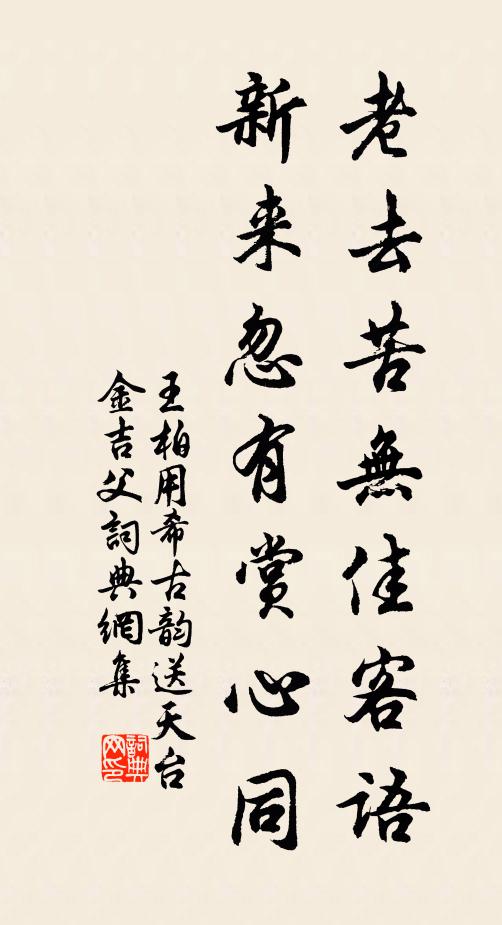 老去苦無佳客語
新来忽有賞心同
王柏用希古韵送天台
金吉父詞典網集
詞典
网印